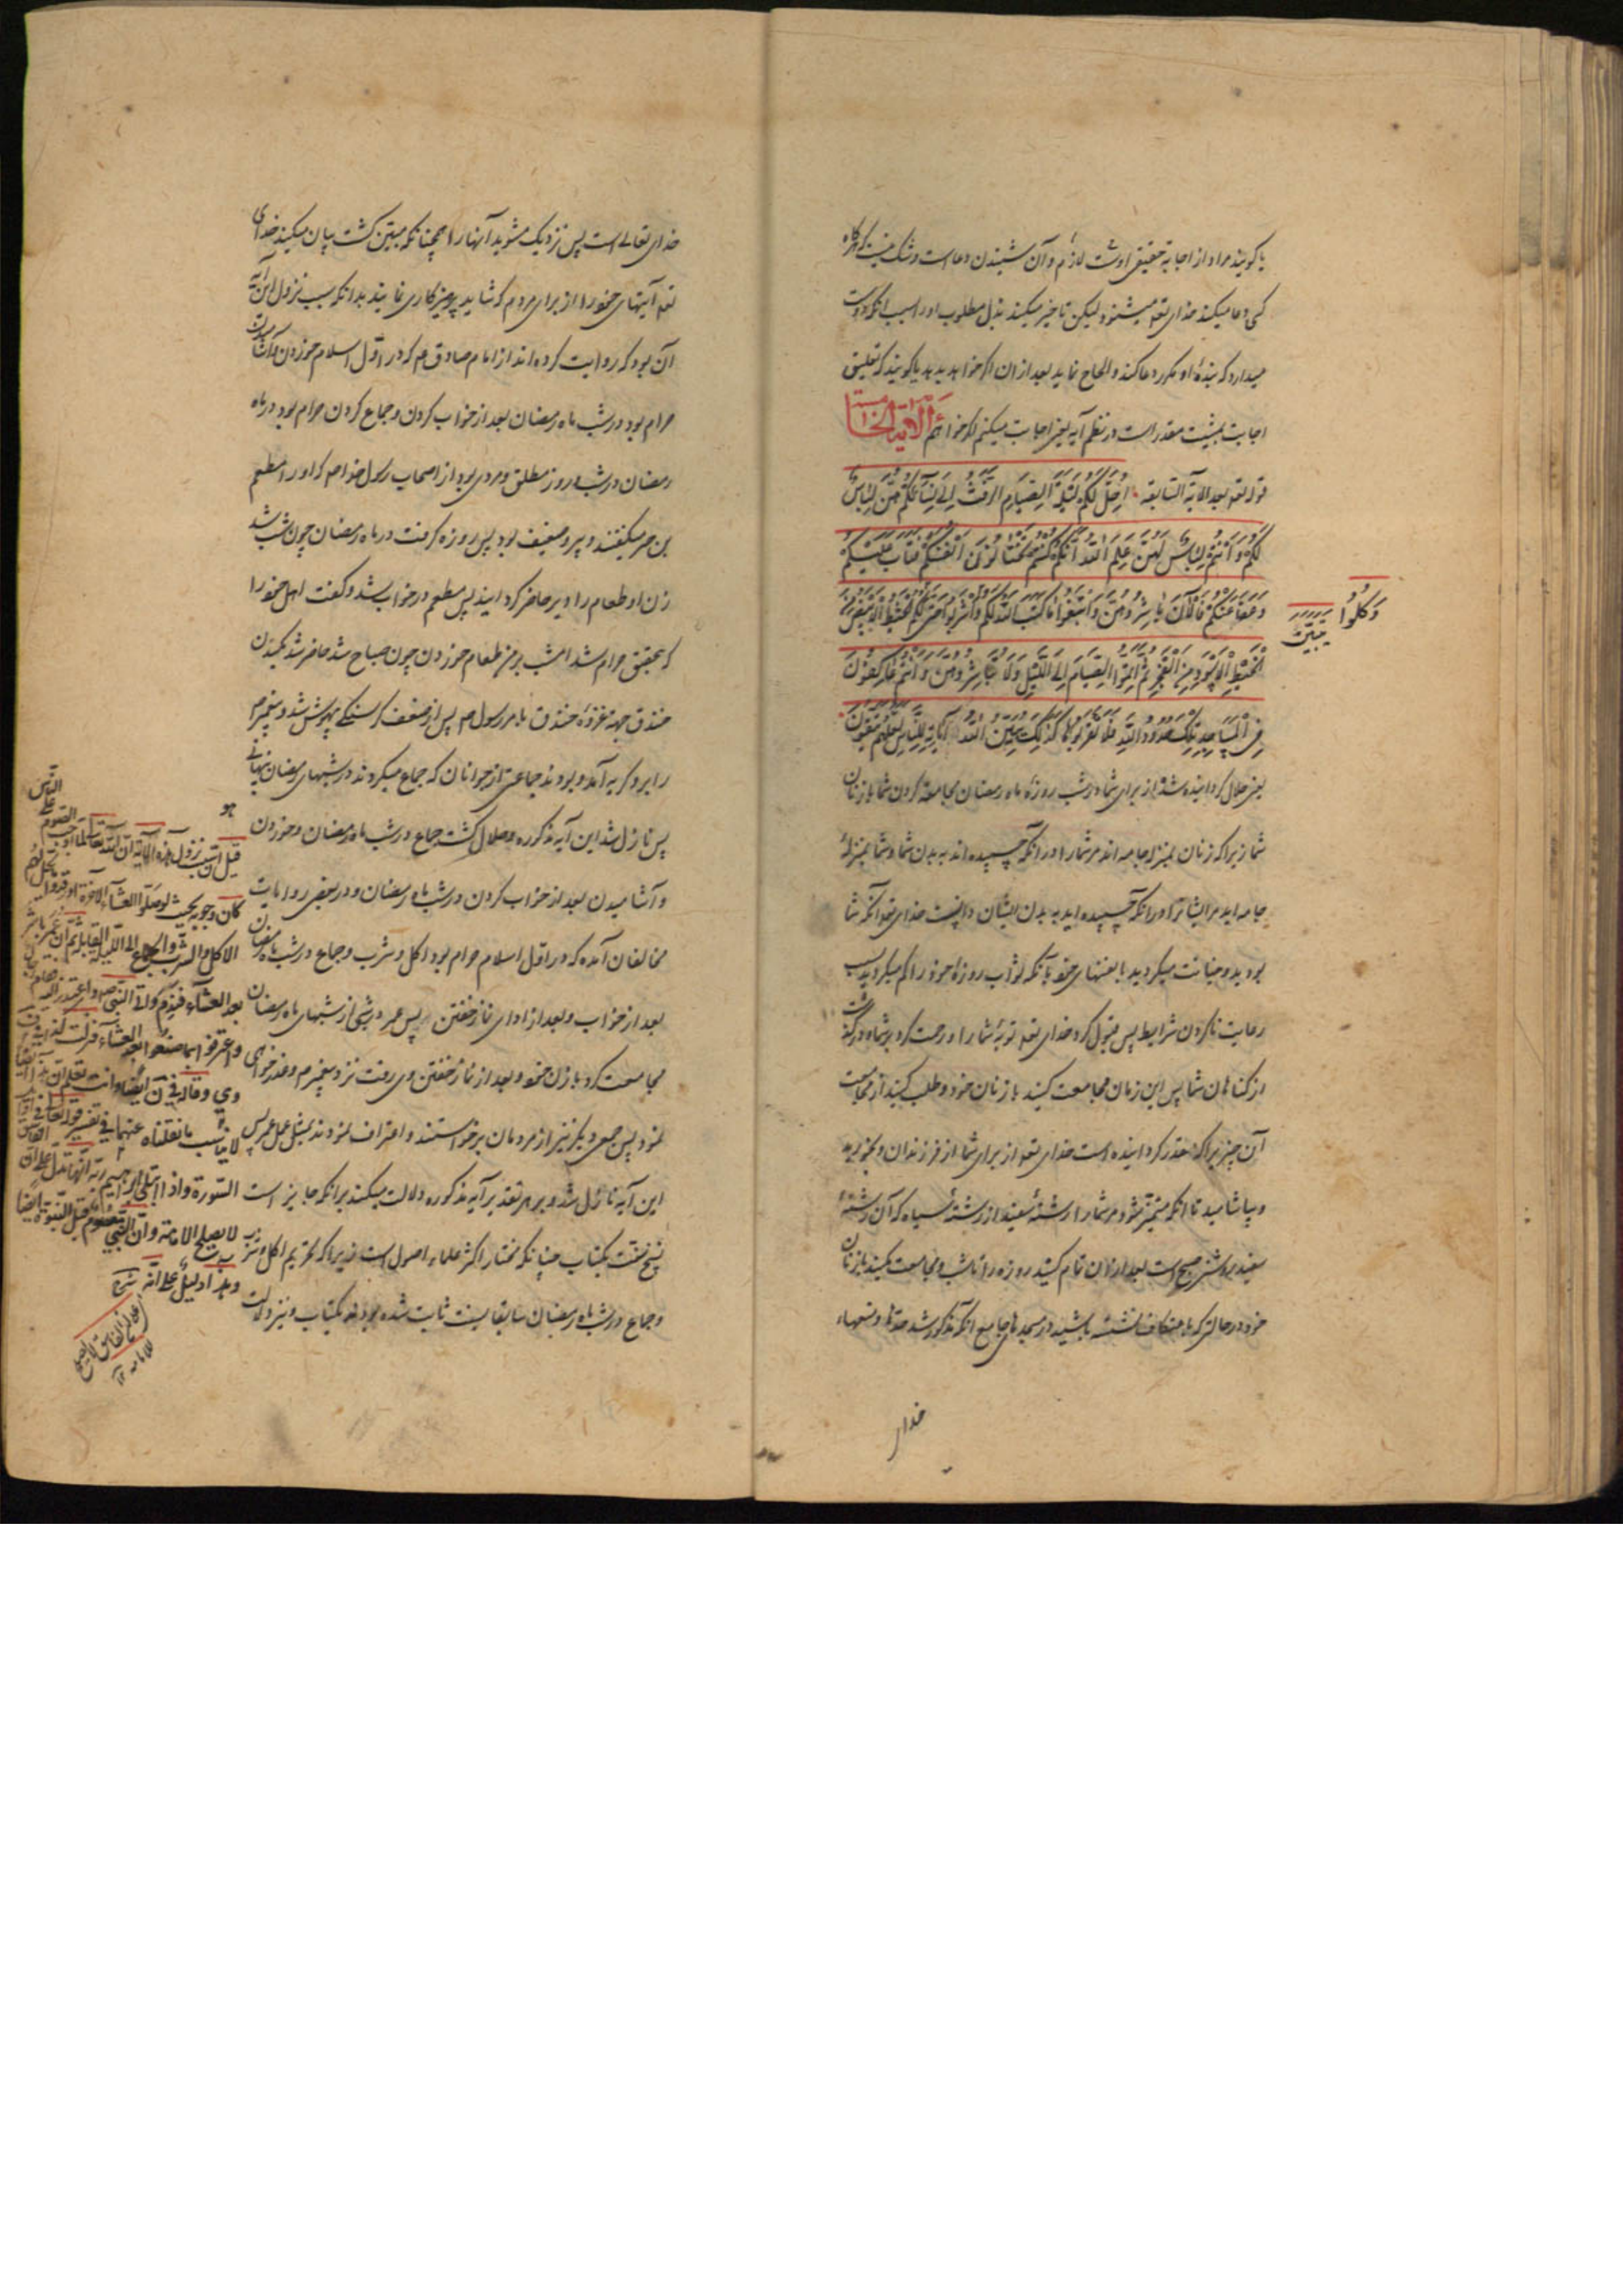 یا کویند مراد از اجابة حقیقی اوست لازم و آن شنیدن دعاست و شک نیست که هرکاه
کسی دعا میکند خدای تعه میشنود لیکن تاخیر میکند بذل مطلوب او را بسبب انکه دوست
میدارد که بندۀ او مکرر دعا کند و الحاح نماید بعد از ان اکر خواهد بدهد یا کویند که تعلیق
اجابت بمشیت مقدر است در نظم آیه یعنی اجابت میکنم اکر خواهم الآیة الخامسة
قوله تعه بعد الایة السابقه اُحِلَّ لَكُمْ لَيْلَةَ الصِّيَامِ الرَّفَثُ اِلَى نِسَآئِكُمْ هُنَّ لِبَاسٌ
لَكُمْ وَاَنْتُمْ لِبَاسٌ لَهُنَّ عَلِمَ اللّٰهُ اَنَّكُمْ كُنْتُمْ تَخْتَانُونَ اَنْفُسَكُمْ فَتَابَ عَلَيْكُمْ
وَعَفَا عَنْكُمْ فَالْآنَ بَاشِرُوهُنَّ وَابْتَغُوا مَا كَتَبَ اللّٰهُ لَكُمْ وَاشْرَبُوا حَتّٰى لَكُمُ الْخَيْطُ الْاَبْيَضُ مِنَ
وَكُلُوا يَتَبَيَّنَ
الْخَيْطِ الْاَسْوَدِ مِنَ الْفَجْرِ ثُمَّ اَتِمُّوا الصِّيَامَ اِلَى اللَّيْلِ وَلَا تُبَاشِرُوهُنَّ وَاَنْتُمْ عَاكِفُونَ
فِى الْمَسَاجِدِ تِلْكَ حُدُودُ اللّٰهِ فَلَا تَقْرَبُوهَا كَذٰلِكَ يُبَيِّنُ اللّٰهُ آيَاتِهِ لِلنَّاسِ لَعَلَّهُمْ يَتَّقُونَ
یعنی حلال کردانیده شد از برای شما در شب روزۀ ماه رمضان مجامعة کردن شما با زنان
شما زیرا که زنان بمنزله جامه اند مر شما را در انکه چسپیده اند به بدن شما و شما بمنزلۀ
جامه اید مر ایشانرا در انکه چسپیده اید به بدن ایشان دانست خدای تعه آنکه شما
بودید و خیانت میکردید با نفسهای خود بآنکه ثواب روزۀ خود را کم میکردید بسبب
رعایت ناکردن شرایط پس قبول کرد خدای تعه توبۀ شما را و رحمت کرد بر شما و درکذشت
از کناهان شما پس این زمان مجامعت کنید با زنان خود و طلب کنید از مجامعت
آن چیزیرا که مقدر کردانیده است خدای تعه از برای شما از فرزندان و بخورید
و بیاشامید تا انکه متمیز شود مر شما را رشتۀ سفید از رشتۀ سیاه که آن رشتۀ
سفید روشنی صبح است بعد از ان تمام کنید روزه را تا شب و مجامعت مکنید با زنان
خود در حالتی که باعتکاف نشسته باشید در مسجدهای جامع انکه مذکور شد حدها و نهیهاء
خدای
خدای تعالی است پس نزدیک مشوید آنها را همچنانکه مبیّن کشت بیان میکند خدای
تعه آیتهای خود را از برای مردم که شاید پرهیزکاری نمایند بدانکه سبب نزول این آیه
آن بود که روایت کرده اند از امام صادق م که در اوّل اسلام خوردن و آشامیدن
حرام بود در شب ماه رمضان بعد از خواب کردن و جماع کردن حرام بود در ماه
رمضان در شب و روز مطلق و مردی بود از اصحاب رسول خدا ص که او را مطعم
بن جبیر میکفتند و پیر و ضعیف بود پس روزه کرفت در ماه رمضان چون شب شد
زن او طعام را دیر حاضر کردانید پس مطعم در خواب شد و کفت اهل خود را
که بتحقیق حرام شد امشب بر من طعام خوردن چون صباح شد حاضر شد بکندن
خندق جهة غزوۀ خندق بامر رسول ص پس از ضعف کرسنکی بیهوش شد و پیغمبر م
را برو کریه آمد و بودند جماعتی از جوانان که جماع میکردند در شبهای رمضان پنهانی
پس نازل شد این آیه مذکوره و حلال کشت جماع در شب ماه رمضان و خوردن
و آشامیدن بعد از خواب کردن در شب ماه رمضان و در بعضی روایات
مخالفان آمده که در اوّل اسلام حرام بود اکل و شرب و جماع در شب ماه رمضان
بعد از خواب و بعد از ادای نماز خفتن پس عمر در شبی از شبهای ماه رمضان
مجامعت کرد با زن خود بعد از نماز خفتن و رفت نزد پیغمبر م و عذر خواهی
نمود پس جمعی دیکر نیز از مردمان برخواستند و اعتراف نمودند بمثل عمل عمر پس
این آیه نازل شد و بر هر تقدیر آیه مذکوره دلالت میکند بر انکه جایز است
نسخ سنّت بکتاب چنانکه مختار اکثر علماء اصول است زیرا که تحریم اکل و شرب
و جماع در شب ماه رمضان سابقا بسنت ثابت شده بود نه بکتاب و نیز دلالت
قیل انّ سبب نزول هذه الآیة انّ اللّه تعالی لمّا اوجب الصّوم علی النّاس
کان وجوبه بحیث لو صلّوا العشآء الآخرة او رقدوا لم یحلّ لهم
الاکل والشّرب والجماع الی اللّیلة القابلة ثم ان عمر باشر
بعد العشآء فندم واتی النّبی ص واعتذر الیه
واعترفوا بما صنعوا بعد العشآء فنزلت